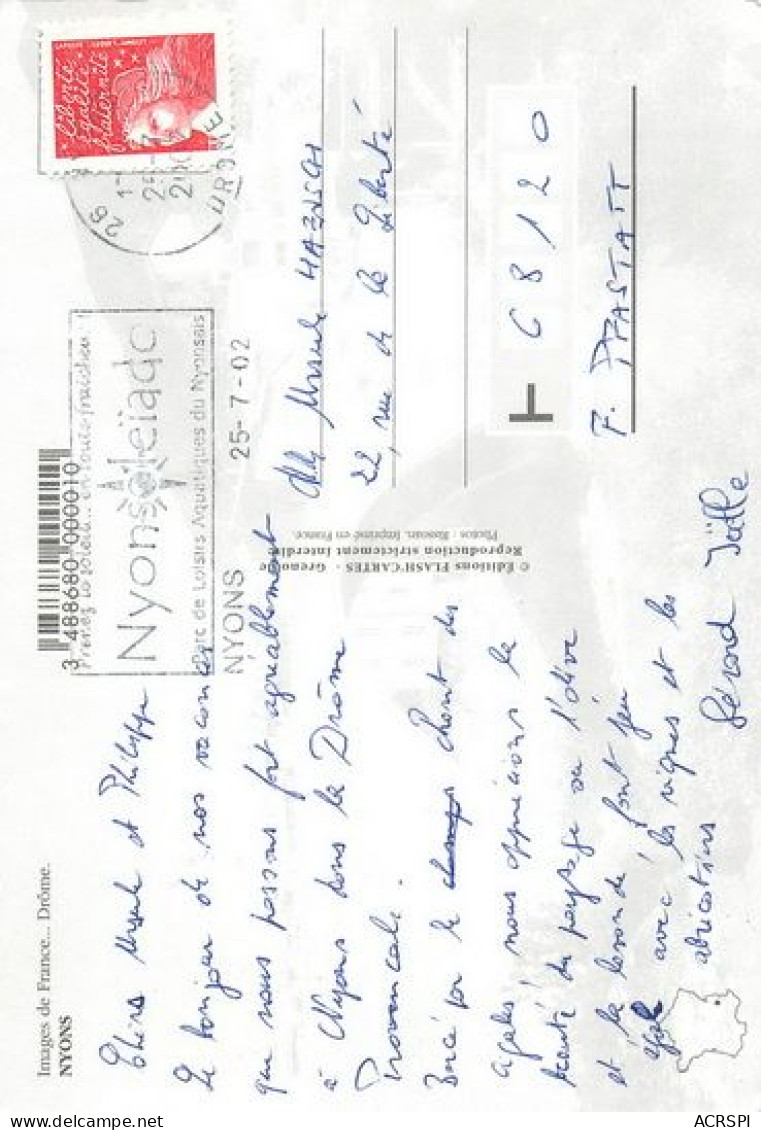 Images de France... Drôme.
NYONS
3 488680 000010
Chers Ursule et Philippe
Le bonjour de nos vacances
que nous passons fort agréablement
à Nyons dans la Drôme
Provençale.
Bercé par le chant des
cigales, nous apprécions la
beauté du paysage où l'olive
et la lavande font jeu
égal avec les vignes et les
abricotiers
Gérard Joëlle
© Éditions FLASH'CARTES - Grenoble
Reproduction strictement interdite
Photos : Rassuan. Imprimé en France.
liberté
égalité
fraternité
26
25-7
DROME
Prenez le soleil... en toute fraîcheur !
Nyonsoleïado
Parc de Loisirs Aquatiques du Nyonsais
NYONS 25-7-02
Ursule HAENSCH
22, rue de la Liberté
68120
F. PFASTATT
ACRSPI